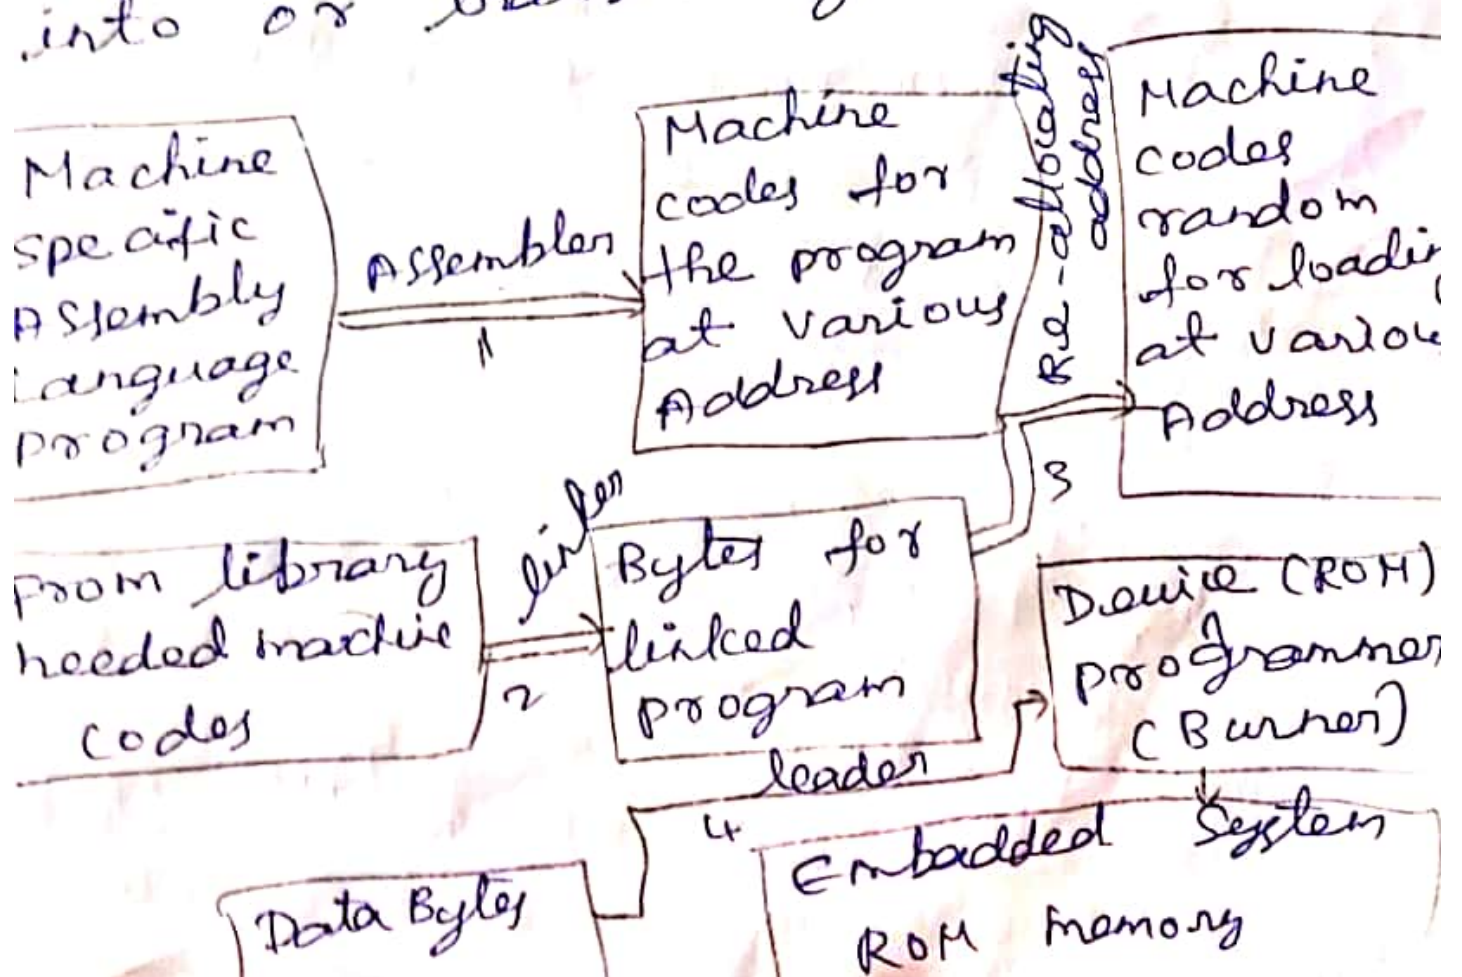 into or
Machine
specific
Assembly
Language
program
Assembler
1
Machine
codes for
the program
at various
Address
Re-allocating
address
Machine
codes
random
for loadin
at variou
Address
3
From library
needed machine
codes
linker
2
Bytes for
linked
program
Device (ROM)
programmer
(Burner)
leader
4
Data Bytes
Embadded System
ROM memory